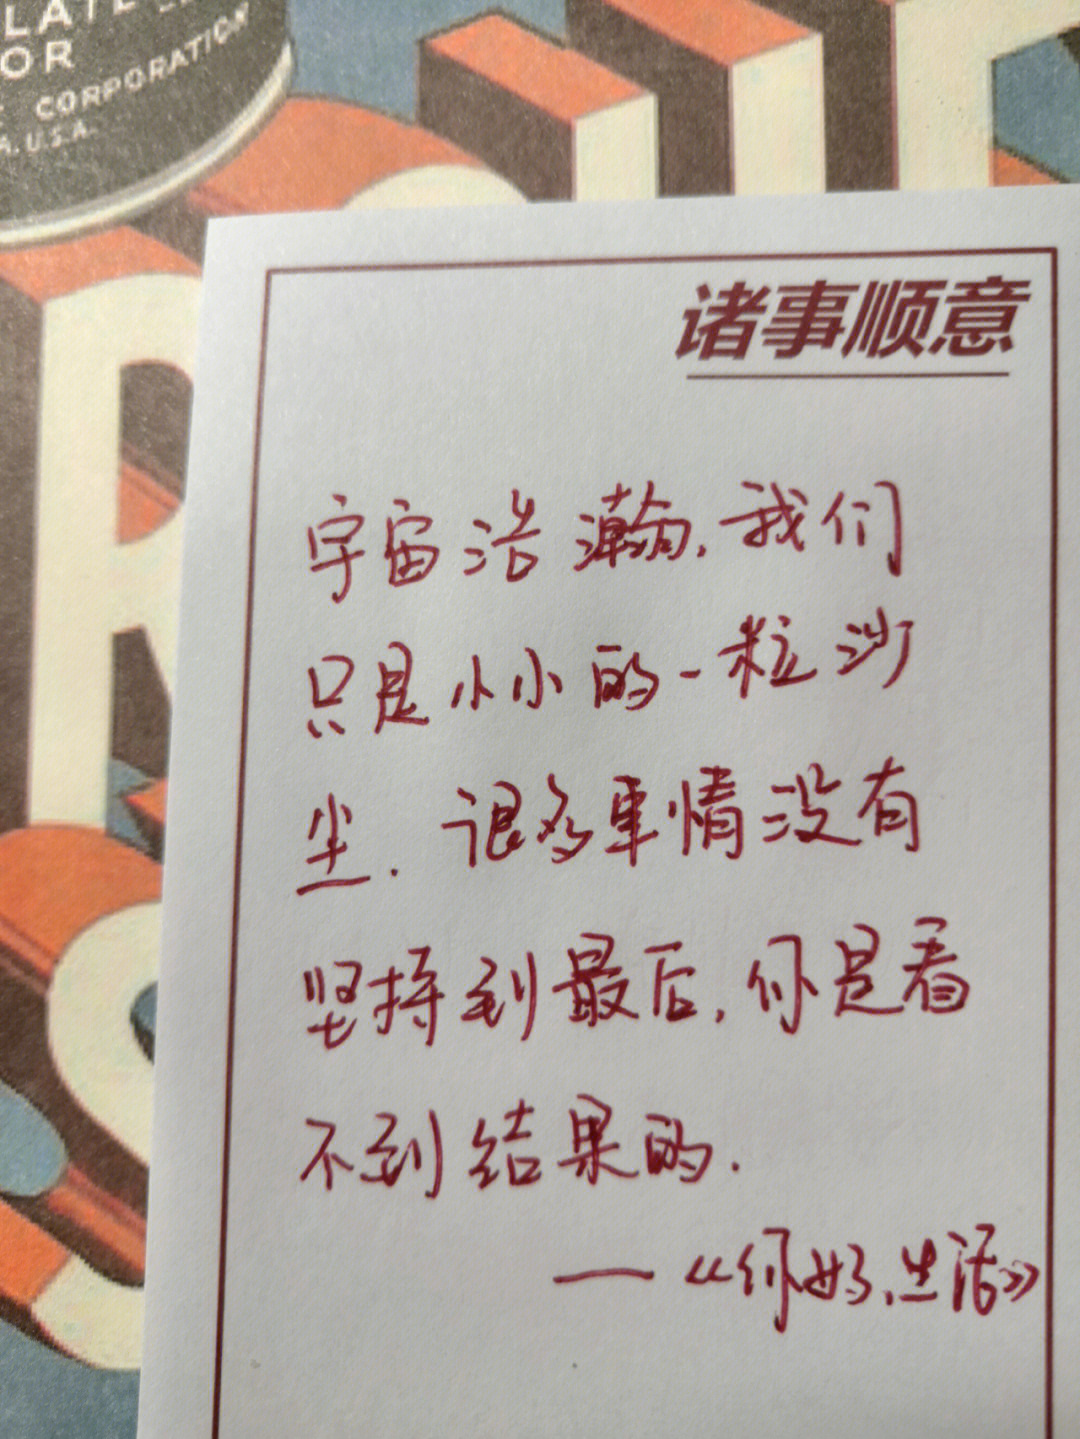 LATE
OR
CORPORATION
A. U.S.A.
诸事顺意
宇宙浩瀚,我们
只是小小的一粒沙
尘.很多事情没有
坚持到最后,你是看
不到结果的.
—《你好、生活》